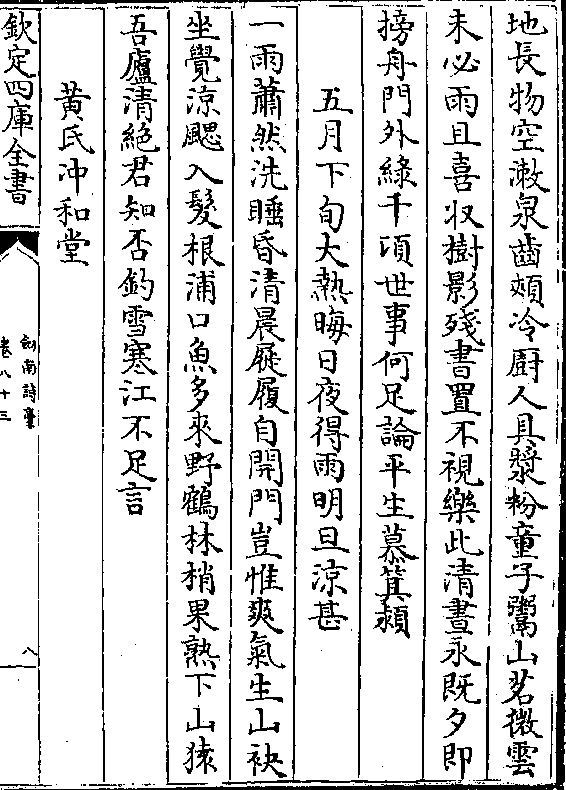 地長物空漱泉齒頰冷厨人具漿粉童子鬻山茗微雲
未必雨且喜収樹影殘書置不視樂此清晝永既夕即
搒舟門外綠千頃世事何足論平生慕箕潁
五月下旬大熱晦日夜得雨明旦涼甚
一雨蕭然洗睡昏清晨屣履自開門豈惟爽氣生山袂
坐覺涼颸入髮根浦口魚多來野鶴林梢果熟下山猿
吾廬清絕君知否釣雪寒江不足言
黃氏冲和堂
欽定四庫全書
劍南詩藁
卷八十三
八